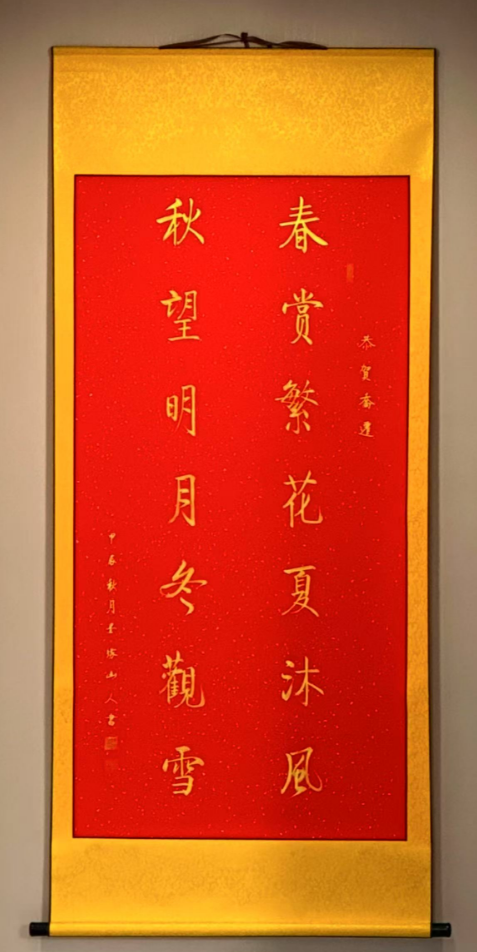 恭賀喬遷
春賞繁花夏沐風
秋望明月冬觀雪
甲辰秋月書